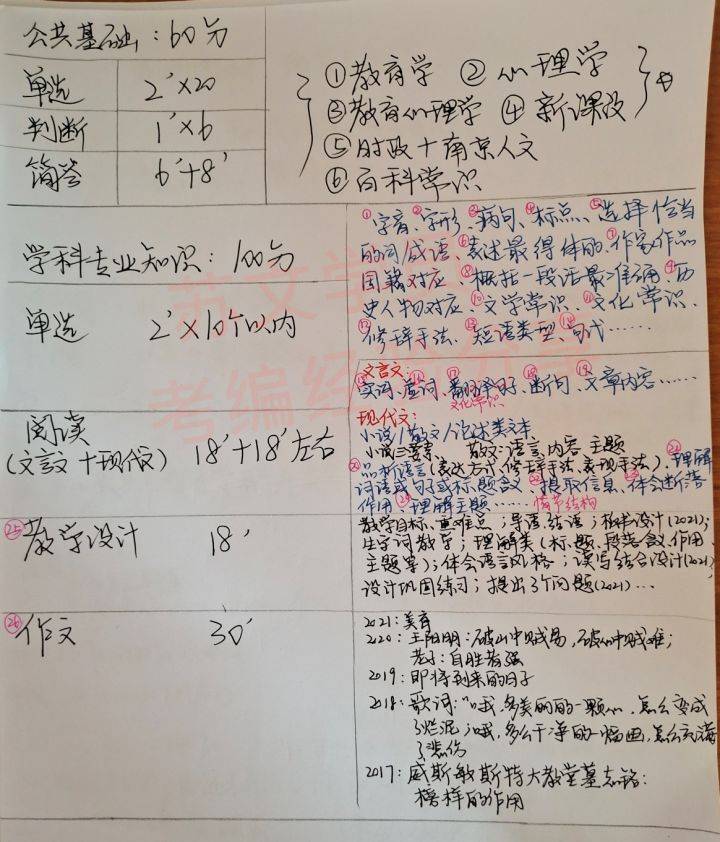 公共基础：60分
单选 2'×20
判断 1'×6
简答 6'+8'
①教育学 ②心理学
③教育心理学 ④新课改
⑤时政+南京人文
⑥百科学识
学科专业知识：100分
单选 2'×10个以内
①字音、②字形、③病句、④标点、⑤选择恰当
的词/成语、⑥表述最得体的、⑦作家作品
国籍对应、⑧概括一段话最准确、⑨历
史人物对应、⑩文学常识、⑪文化常识、
⑫修辞手法、⑬短语类型、⑭句式……
文言文：
⑮实词、⑯虚词、⑰翻译句子、⑱断句、⑲文章内容……
文化常识
阅读
(文言文+现代文) 18'+18'左右
现代文：
小说/散文/论述类文本
小说三要素、散文：语言、内容、主题
⑳品析语言(表达方式、修辞手法、表现手法)、㉑理解
词语或句或标题含义、㉒提取信息、㉓体会断落
作用、㉔理解主题……情节结构
㉕教学设计 18'
教学目标、重难点；导语、结语；板书设计(2021)；
生字词教学；理解类(标题、段落含义、作用
主题等)；体会语言风格；读写结合设计(2021)
设计巩固练习；提出3个问题(2021)…
㉖作文 30'
2021：美育
2020：王阳明：破山中贼易，破心中贼难；
老子：自胜者强
2019：即将到来的日子
2018：歌词："哦，多美丽的一颗心，怎么变成
了烂泥；哦，多么干净的一幅画，怎么充满
了悲伤
2017：威斯敏斯特大教堂墓志铭：
榜样的作用
苏文学